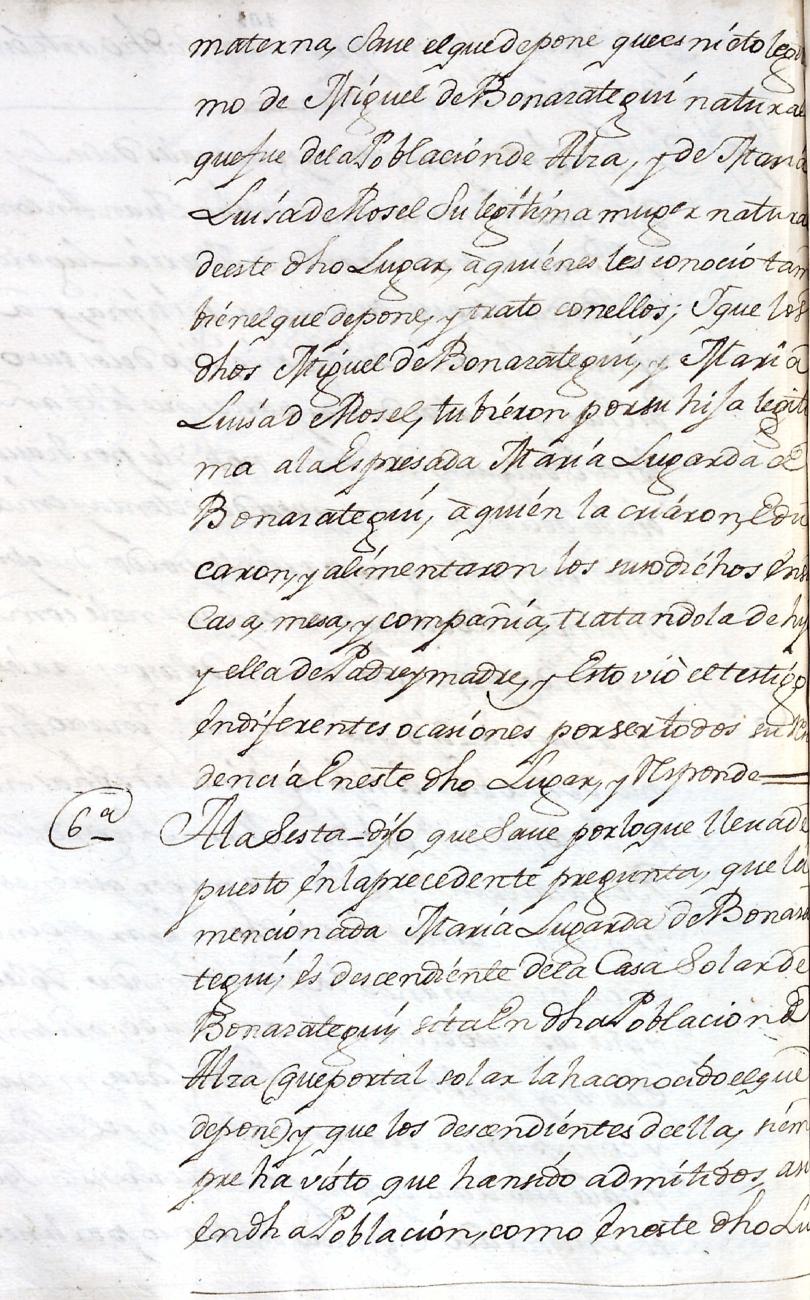 materna, Save el que depone que es niéto legiti
mo de Miguel de Bonarateguí natural
que fue de la Poblacion de Alza, y de Maria
Luisa de Rosel Su legítima muger natura
de este dho Lugar, a quiénes les conoció tam
bién el que depone, y trato con ellos; Y que los
dhos Miguel de Bonarateguí, y Maria
Luisa de Rosel, tubiéron por su hija legiti
ma a la Espresada María Lugarda de
Bonarateguí, a quién la criáron, Edu
caron, y alimentaron los susodichos En su
Casa, mesa, y compañia, tratandola de hija
y ella de Padre y madre, y Esto vió el testigo
En diferentes ocasiones por ser todos su Resi
dencia En este dho Lugar, y Responde
6ª A la Sesta dijo que Save por lo que lleva de
puesto En la precedente pregunta, que la
mencionada María Lugarda de Bonara
teguí, és descendiénte de la Casa Solar de
Bonarateguí, sita En dha Poblacion de
Alza (que por tal solar la ha conocido el que
depone) y que los descendiéntes de ella, siém
pre ha visto que han sido admitidos, asi
En dha Población, como En este dho Lu